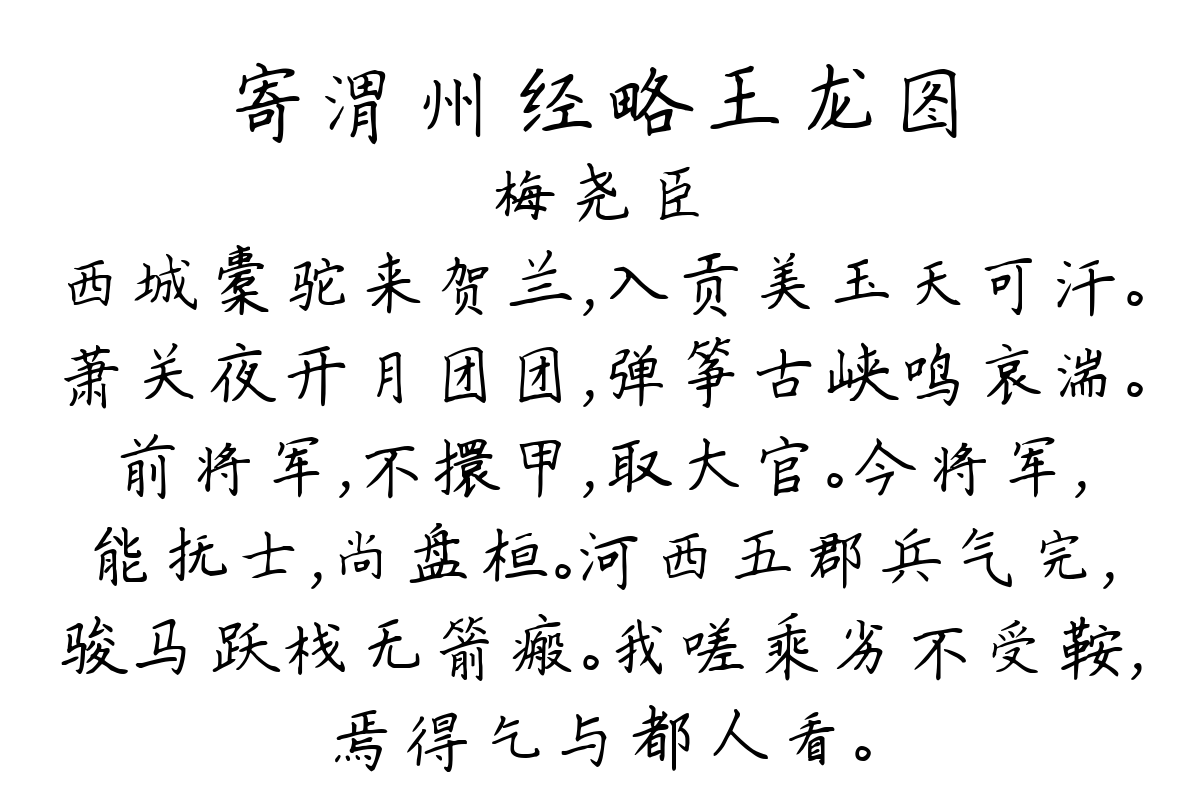 寄渭州经略王龙图
梅尧臣
西城橐驼来贺兰,入贡美玉天可汗。
萧关夜开月团团,弹筝古峡鸣哀湍。
前将军,不擐甲,取大官。今将军,
能抚士,尚盘桓。河西五郡兵气完,
骏马跃栈无箭瘢。我嗟乘劣不受鞍,
焉得乞与都人看。